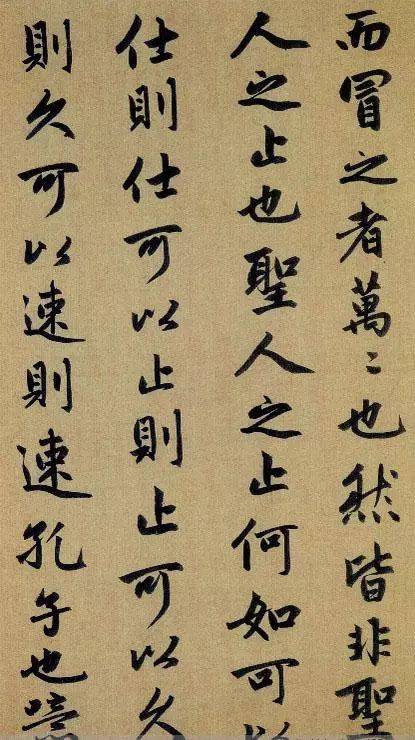 而冒之者萬々也然皆非聖
人之止也聖人之止何如可以
仕則仕可以止則止可以久
則久可以速則速孔子也噫